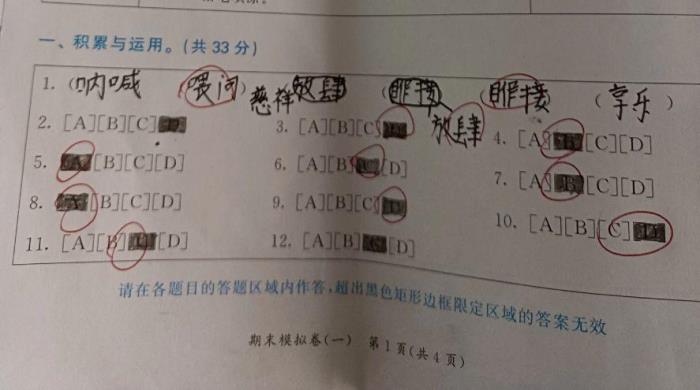 一、积累与运用。(共 33 分)
1. (呐喊) (喂问) 慈祥 放肆 ( ) 放肆 ( 接) (享乐)
2. [A][B][C] 3. [A][B][C] 4. [A] [C][D]
5. [A][B][C][D] 6. [A][B][C][D] 7. [A][B][C][D]
8. [A][B][C][D] 9. [A][B][C][D] 10. [A][B][C]
11. [A][B] [D] 12. [A][B][C][D]
请在各题目的答题区域内作答,超出黑色矩形边框限定区域的答案无效
期末模拟卷(一) 第 1 页(共 4 页)